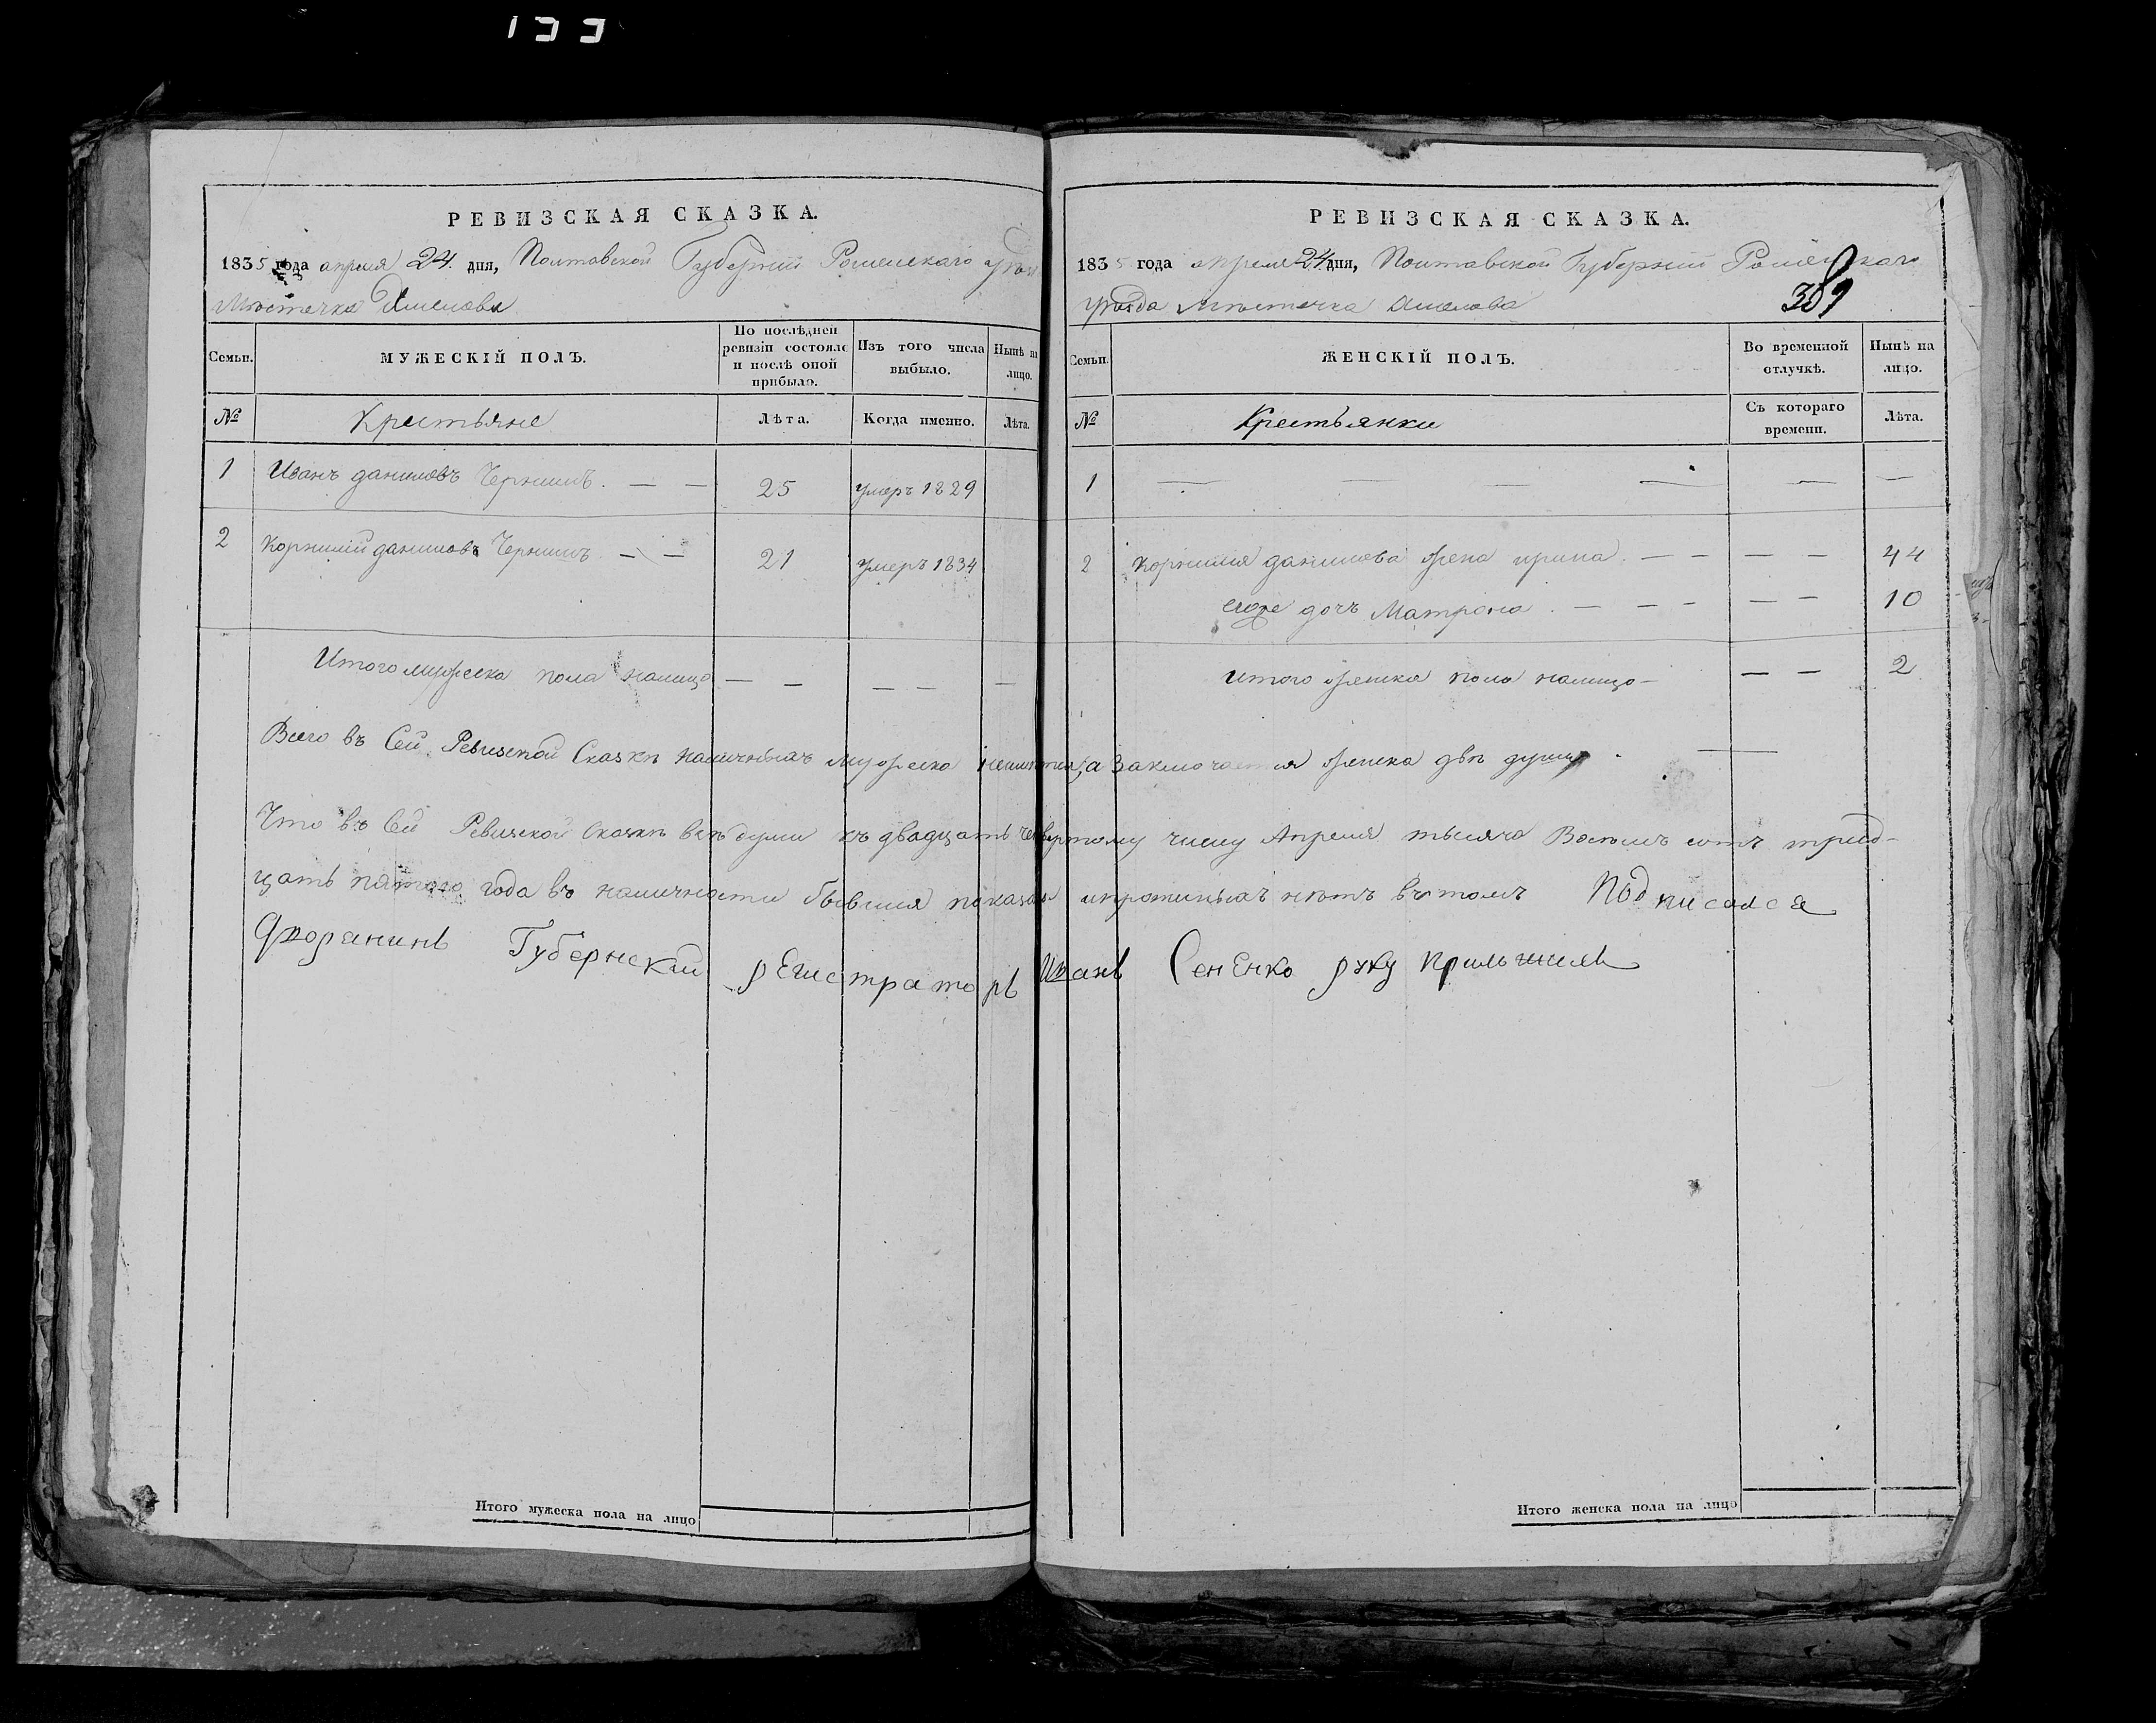 РЕВИЗСКАЯ СКАЗКА.
1835 года апреля 24 дня, Полтавской Губернии Роменскаго уезда
Местечка Смелова
Семьи.
МУЖЕСКІЙ ПОЛЪ.
По послѣдней ревизіи состояло и послѣ оной прибыло.
Изъ того числа выбыло.
Нынѣ на лицо.
№
Крестьяне
Лѣта.
Когда именно.
Лѣта.
1 Иванъ даниловъ Чернишъ. — — 25 умеръ 1829
2 Корнилий даниловъ Чернишъ — — 21 умеръ 1834
Итого мужеска пола налицо — — — — —
РЕВИЗСКАЯ СКАЗКА.
1835 года апреля 24 дня, Полтавской Губернии Роменскаго
уезда Местечка Смелова
389
Семьи.
ЖЕНСКІЙ ПОЛЪ.
Во временной отлучкѣ.
Нынѣ на лицо.
№
Крестьянки
Съ котораго времени.
Лѣта.
1 — — — — — —
2 Корнилия данилова жена ирина — — — — 44
егоже дочь Матрона — — — — — 10
итого женска пола налицо — — — 2
Всего въ Сей Ревизской Сказкѣ наличныхъ мужеска неимѣется, а заключается женска двѣ души
Что въ Сей Ревизской Сказкѣ всѣ души къ двадцать четвертому числу Апреля тысяча Восемъ сотъ трид-
цать пятого года въ наличности бывшия показаны ипрописныхъ нѣтъ вътомъ Подписался
Дворанинъ Губернский рЕгистраторъ Иванъ СенЕнко руку приложилъ
Итого мужеска пола на лицо
Итого женска пола на лицо